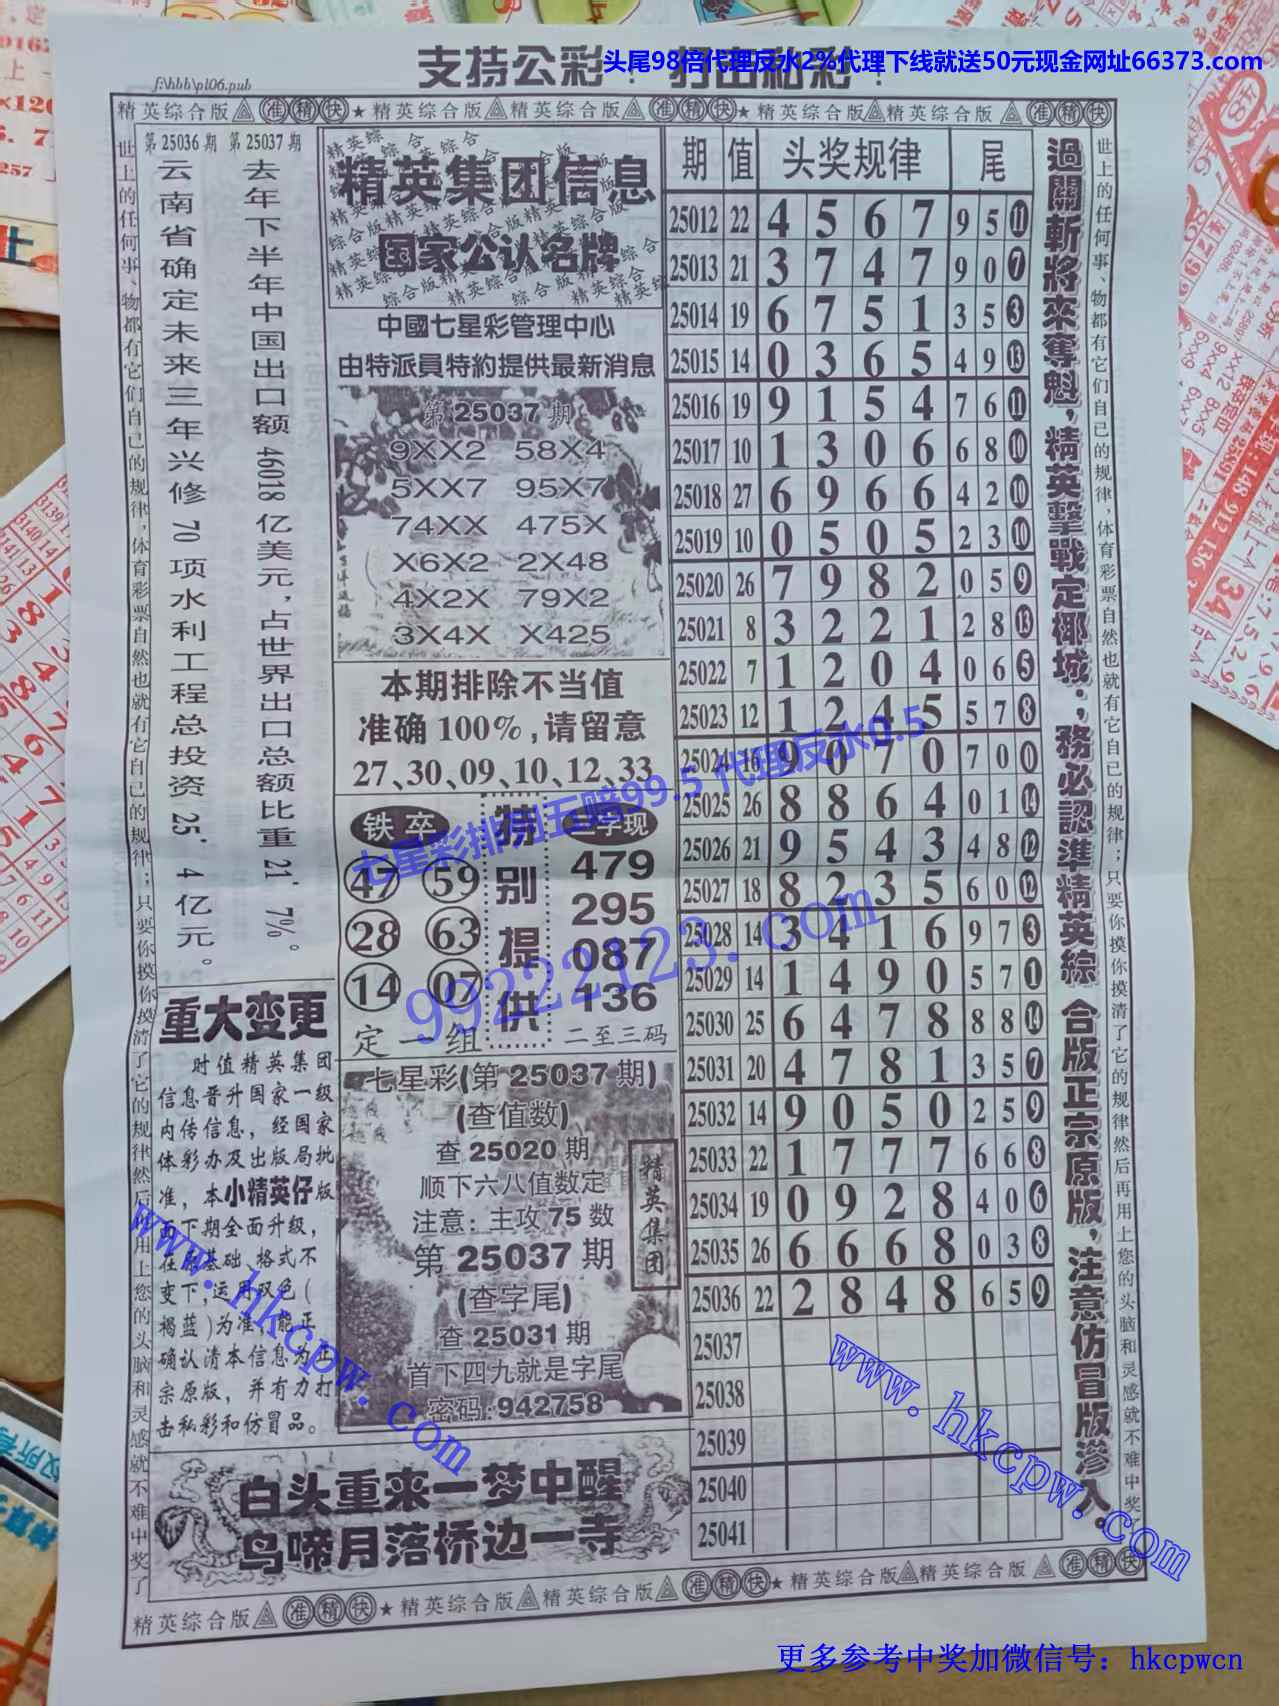 支持公彩！打击私彩！
头尾98倍代理反水2%代理下线就送50元现金网址66373.com
f:\hbb\pl06.pub
精英综合版 准精快 ★ 精英综合版 精英综合版 准精快 ★ 精英综合版 精英综合版 准精快
世上的任何事、物都有它们自己的规律，体育彩票自然也就有它自己的规律；只要你摸你摸清了它的规律然后再用上您的头脑和灵感就不难中奖了
第25036期 第25037期
云南省确定未来三年兴修70项水利工程总投资25.4亿元。
去年下半年中国出口额46018亿美元，占世界出口总额比重21.7%。
重大变更
时值精英集团
信息晋升国家一级
内传信息，经国家
体彩办及出版局批
准，本小精英仔版
面下期全面升级，
在原基础、格式不
变下，运用双色(
褐蓝)为准，能正
确认清本信息为正
宗原版，并有力打
击私彩和仿冒品。
精英集团信息
国家公认名牌
中國七星彩管理中心
由特派員特約提供最新消息
第25037期
9XX2 58X4
5XX7 95X7
74XX 475X
X6X2 2X48
4X2X 79X2
3X4X X425
本期排除不当值
准确100%，请留意
27、30、09、10、12、33
铁卒
47 59
28 63
14 07
定一组
特别提供
二字现
479
295
087
436
二至三码
七星彩(第25037期)
(查值数)
查25020期
顺下六八值数定
注意：主攻75数
第25037期
(查字尾)
查25031期
首下四九就是字尾
密码:942758
精英集团
白头重来一梦中醒
鸟啼月落桥边一寺
期 值 头奖规律 尾
25012 22 4 5 6 7 9 5 11
25013 21 3 7 4 7 9 0 7
25014 19 6 7 5 1 3 5 3
25015 14 0 3 6 5 4 9 13
25016 19 9 1 5 4 7 6 11
25017 10 1 3 0 6 6 8 10
25018 27 6 9 6 6 4 2 10
25019 10 0 5 0 5 2 3 10
25020 26 7 9 8 2 0 5 9
25021 8 3 2 2 1 2 8 13
25022 7 1 2 0 4 0 6 5
25023 12 1 2 4 5 5 7 8
25024 16 9 0 7 0 7 0 0
25025 26 8 8 6 4 0 1 14
25026 21 9 5 4 3 4 8 12
25027 18 8 2 3 5 6 0 12
25028 14 3 4 1 6 9 7 3
25029 14 1 4 9 0 5 7 1
25030 25 6 4 7 8 8 8 14
25031 20 4 7 8 1 3 5 7
25032 14 9 0 5 0 2 5 9
25033 22 1 7 7 7 6 6 8
25034 19 0 9 2 8 4 0 6
25035 26 6 6 6 8 0 3 8
25036 22 2 8 4 8 6 5 9
25037
25038
25039
25040
25041
過關斬將來奪魁，精英擊戰定椰城；務必認準精英綜合版正宗原版，注意仿冒版滲入。
世上的任何事、物都有它们自己的规律，体育彩票自然也就有它自己的规律；只要你摸你摸清了它的规律然后再用上您的头脑和灵感就不难中奖了
精英综合版 准精快 ★ 精英综合版 精英综合版 准精快 ★ 精英综合版 精英综合版 准精快
七星彩排列五赔99.5 代理反水0.5
99222123.com
www.hkcpw.com
www.hkcpw.com
更多参考中奖加微信号：hkcpwcn